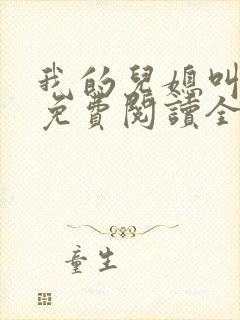 我的兒媳叫
免費閱讀全
童生